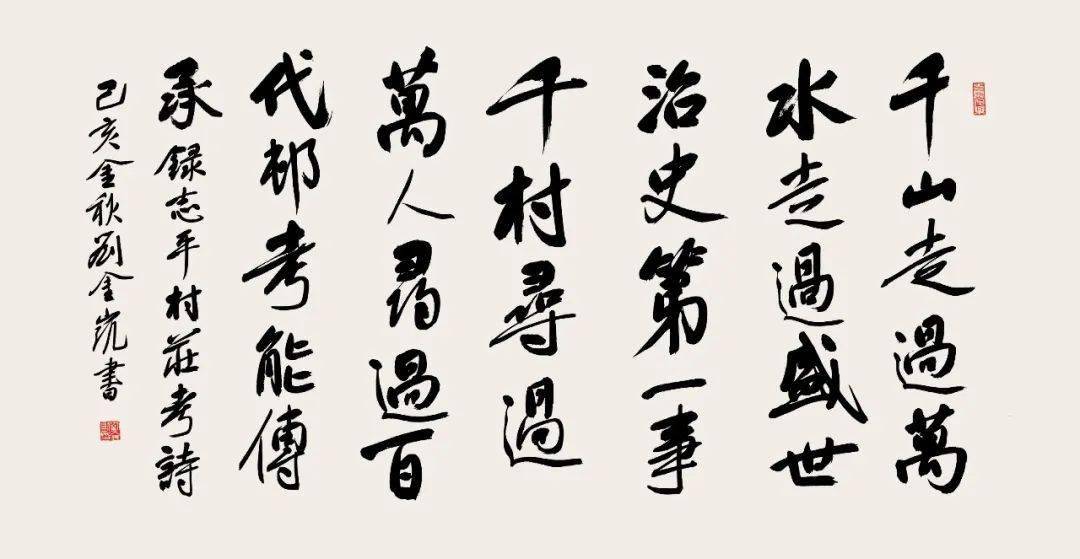 千山走過萬
水走過盛世
治史第一事
千村尋過
萬人尋過百
代邨考能傳
承錄志平村莊考詩
己亥金秋劉金凱書